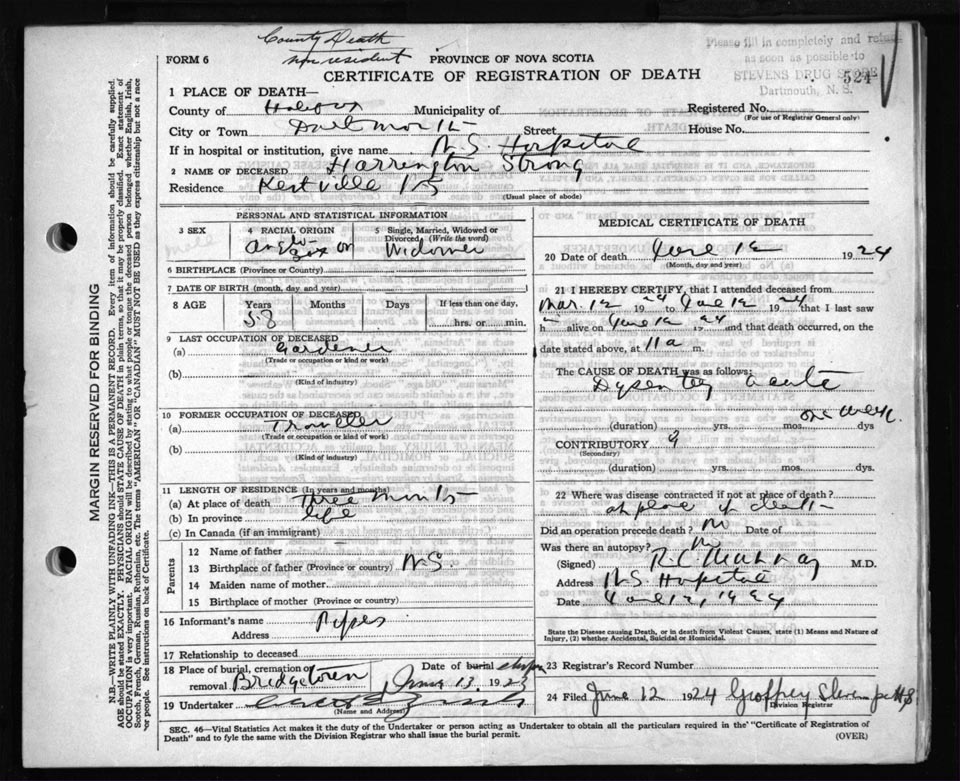 County Death
non resident
Please fill in completely and return
as soon as possible to
STEVENS DRUG STORE
Dartmouth, N. S.
524
FORM 6
PROVINCE OF NOVA SCOTIA
CERTIFICATE OF REGISTRATION OF DEATH
1 PLACE OF DEATH—
County of Halifax Municipality of Registered No.
(For use of Registrar General only)
City or Town Dartmouth Street House No.
If in hospital or institution, give name N.S. Hospital
2 NAME OF DECEASED Harrington Strong
Residence Kentville NS
(Usual place of abode)
PERSONAL AND STATISTICAL INFORMATION
3 SEX
male
4 RACIAL ORIGIN
Anglo-
Saxon
5 Single, Married, Widowed or
Divorced (Write the word)
Widower
6 BIRTHPLACE (Province or Country)
7 DATE OF BIRTH (month, day, and year)
8 AGE Years Months Days If less than one day,
58 hrs. or min.
9 LAST OCCUPATION OF DECEASED
(a) Gardener
(Trade or occupation or kind or work)
(b)
(Kind of industry)
10 FORMER OCCUPATION OF DECEASED
(a) Traveller
(Trade or occupation or kind or work)
(b)
(Kind of industry)
11 LENGTH OF RESIDENCE (In years and months)
(a) At place of death Three months
(b) In province life
(c) In Canada (if an immigrant)
Parents
12 Name of father
13 Birthplace of father (Province or country) N.S.
14 Maiden name of mother
15 Birthplace of mother (Province or country)
16 Informant's name
Address
17 Relationship to deceased
18 Place of burial, cremation or
removal Bridgetown
Date of burial
June 13 1923
19 Undertaker
(Name and Address)
MEDICAL CERTIFICATE OF DEATH
20 Date of death June 12 1924
(Month, day and year)
21 I HEREBY CERTIFY, that I attended deceased from
Mar. 12 1924 to June 12 1924 that I last saw
h alive on June 12 24 and that death occurred, on the
date stated above, at 11 a m.
The CAUSE OF DEATH was as follows:
Dysentery acute
one week
(duration) yrs. mos. dys
CONTRIBUTORY
(Secondary)
(duration) yrs. mos. dys.
22 Where was disease contracted if not at place of death?
at place of death
Did an operation precede death? No Date of
Was there an autopsy? No
(Signed) M.D.
Address N S Hospital
Date June 12, 1924
State the Disease causing Death, or in death from Violent Causes, state (1) Means and Nature of
Injury, (2) whether Accidental, Suicidal or Homicidal.
23 Registrar's Record Number
24 Filed June 12 1924 Geoffrey Stevens
Division Registrar
SEC. 46—Vital Statistics Act makes it the duty of the Undertaker or person acting as Undertaker to obtain all the particulars required in the "Certificate of Registration of
Death" and to fyle the same with the Division Registrar who shall issue the burial permit.
(OVER)
MARGIN RESERVED FOR BINDING
N.B.—WRITE PLAINLY WITH UNFADING INK—THIS IS A PERMANENT RECORD. Every item of information should be carefully supplied.
AGE should be stated EXACTLY. PHYSICIANS should STATE CAUSE OF DEATH in plain terms, so that it may be properly classified. Exact statement of
OCCUPATION is very important. RACIAL ORIGIN will be described by stating to what people or tongue the deceased person belonged whether English, Irish,
Scotch, French, German, Russian, Ruthenian, etc. The terms "AMERICAN" OR "CANADIAN" MUST NOT BE USED as they express citizenship but not a race
or people. See instructions on back of Certificate.